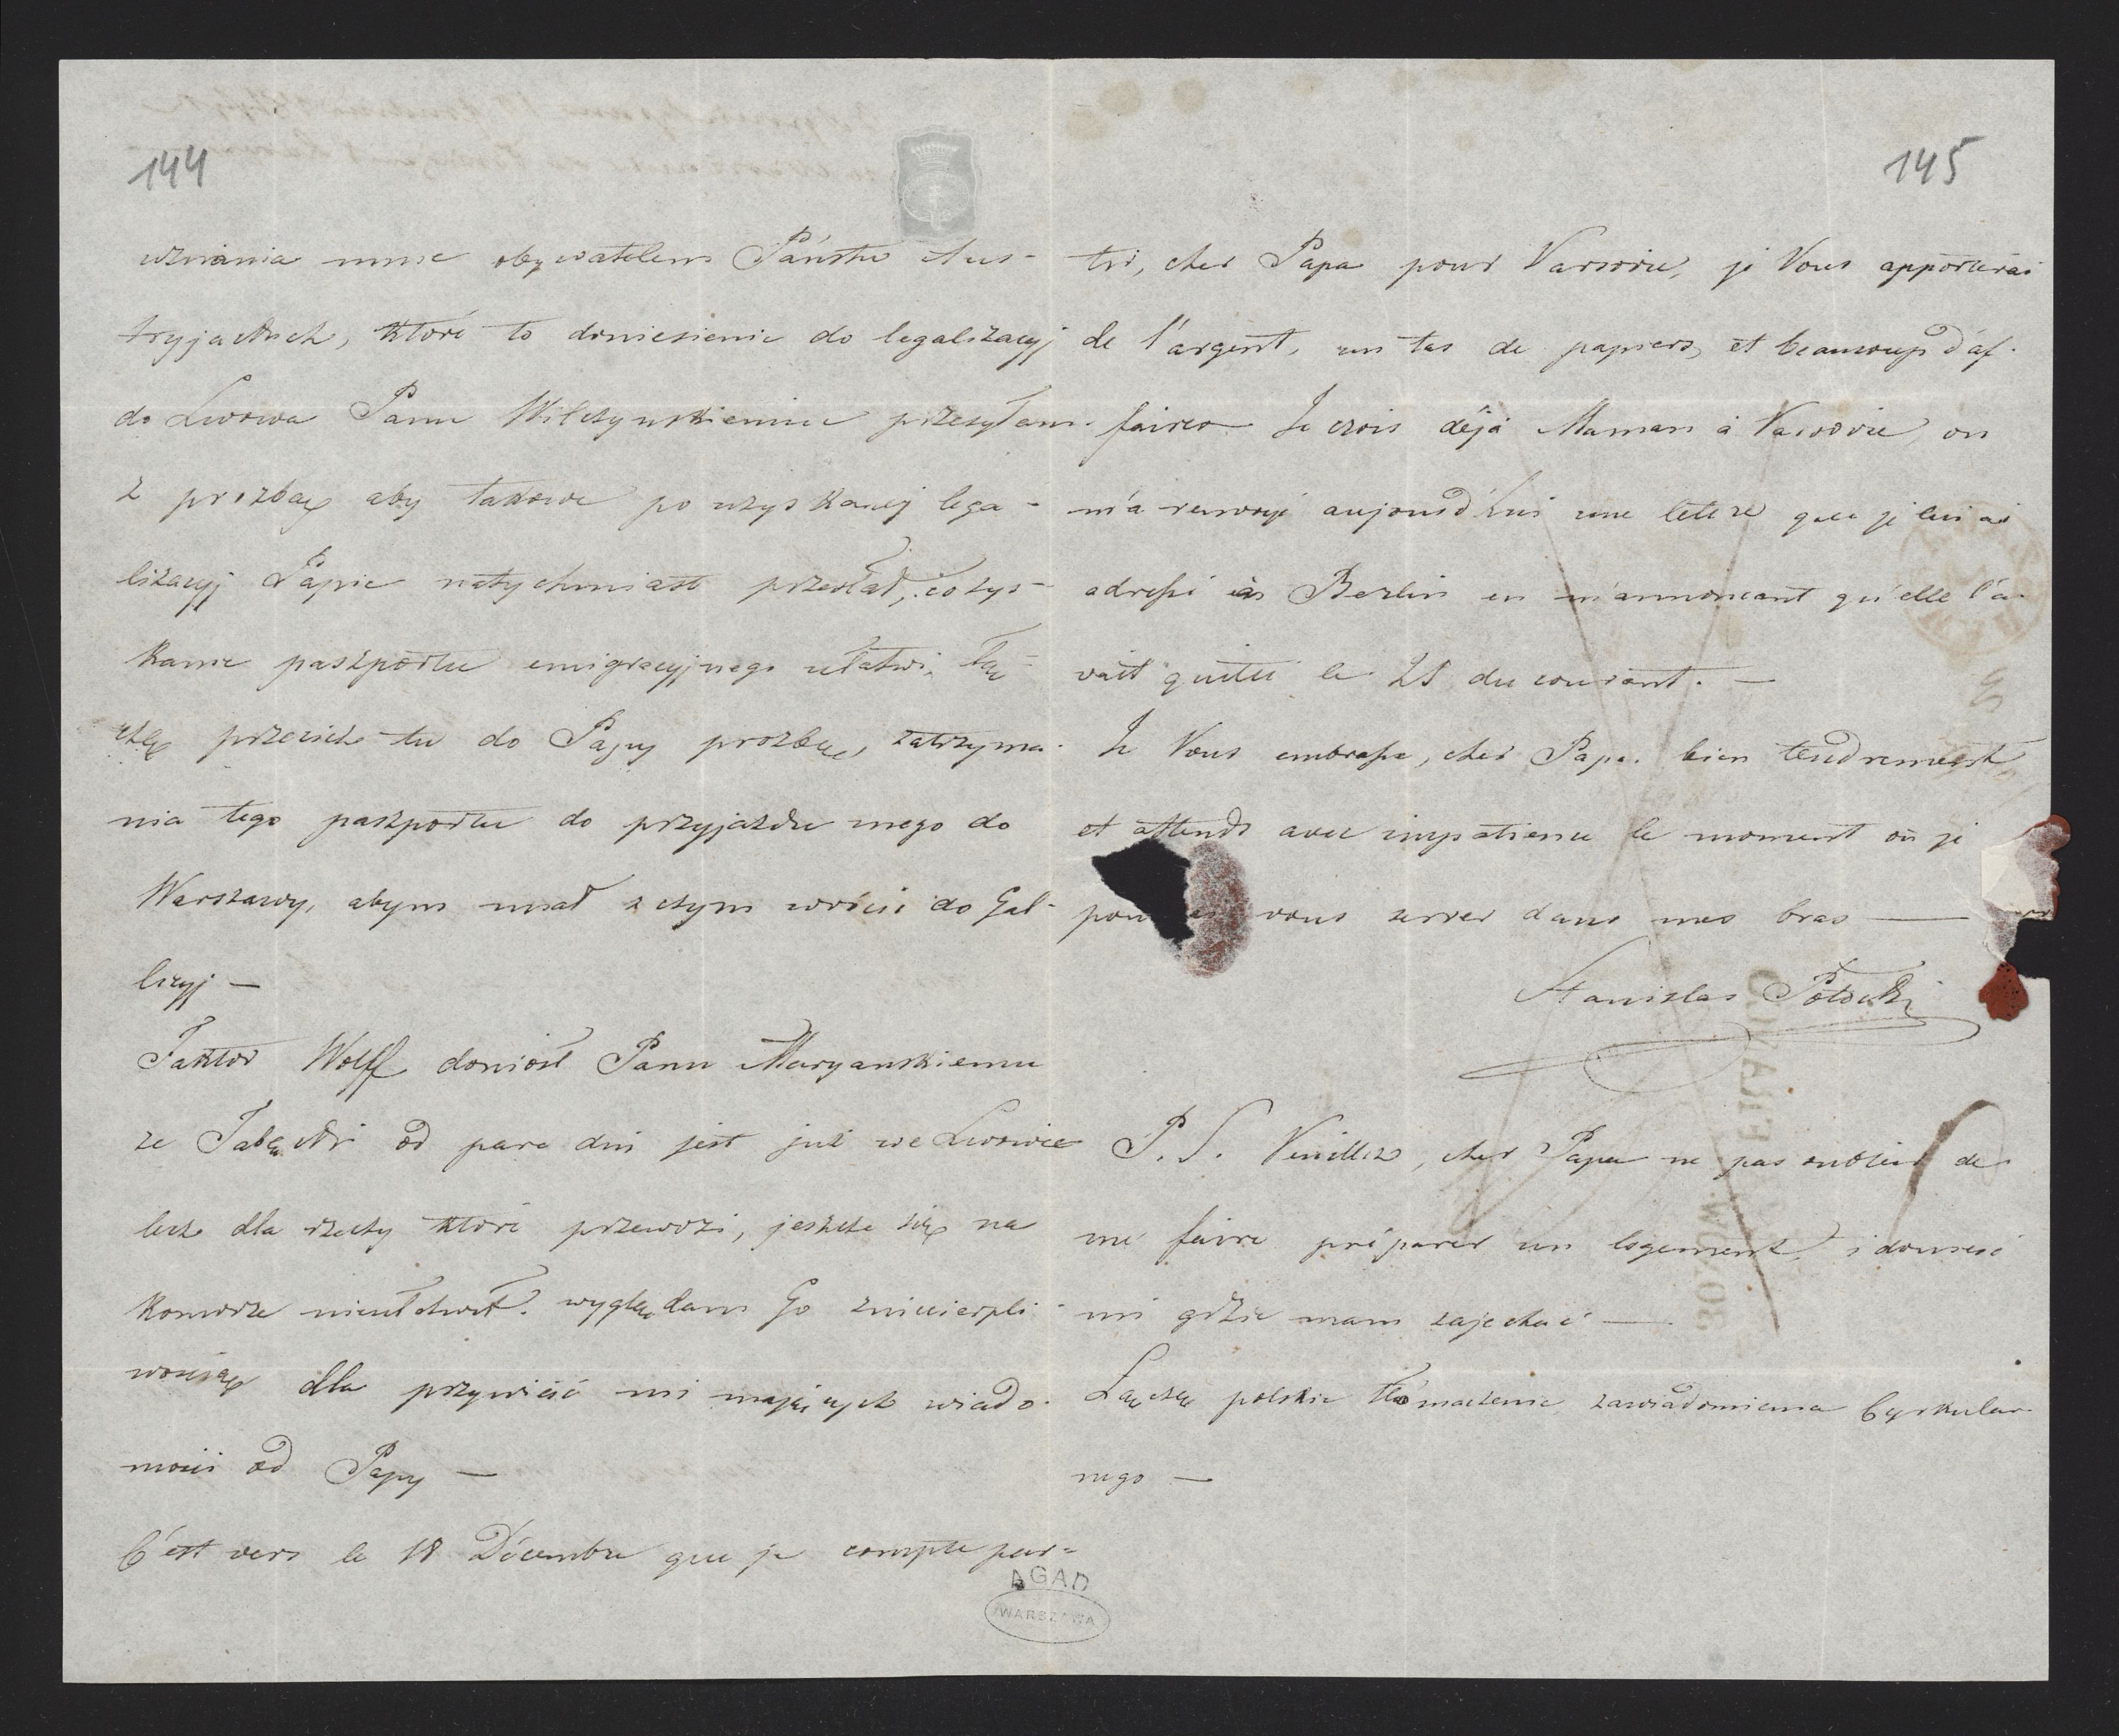 144
uznania mnie obywatelem Państw Aus-
tryjackich, które to doniesienie do legalizacyj
do Lwowa Panu Wilczynskiemu przesyłam
z prozbą aby takowe po uzyskanej lega-
lizacyj Papie natychmiast przesłał, co zys-
kanie paszportu emigracyjnego ułatwi, łą-
czę przecież tu do Papy prozbę, zatrzyma-
nia tego paszportu do przyjazdu mego do
Warszawy, abym miał z czym wrócić do Gal-
licyj —
Faktor Wolff doniosł Panu Maryanskiemu
ze Jabłecki od pare dni jest już we Lwowie
lecz dla rzeczy które przewozi, jeszcze się na
komorze nieułatwił. wyglądam Go zniecierpli-
wością dla przywieść mi mających wiado-
mości od Papy —
C'est vers le 18 Décembre que je compte par-
AGAD
WARSZAWA
145
tir, cher Papa pour Varsovie, je Vous apporterai
de l'argent, un tas de papiers, et beaucoup d'af-
faires. Je crois déja Maman à Varsovie, on
m'a renvoyé aujourd'hui une lettre que je lui ai
adressé à Berlin en m'annoncant qu'elle l'a-
vait quitté le 25 du courant. —
Je Vous embrasse, cher Papa. bien tendrement,
et attends avec impatience le moment où je
pou vous serrer dans mes bras —
Stanislas Potocki
P. S. Veuillez, cher Papa ne pas oublier de
me faire préparer un logement, i donieść
mi gdzie mam zajechać —
Łączę polskie tłómaczenie zawiadomienia Cyrkular-
nego —